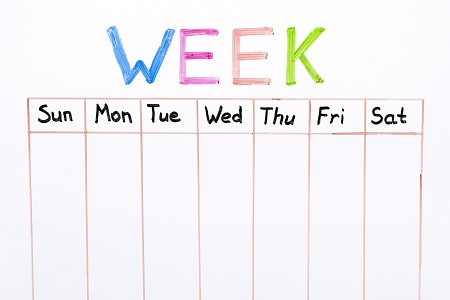 WEEK
Sun Mon Tue Wed Thu Fri Sat